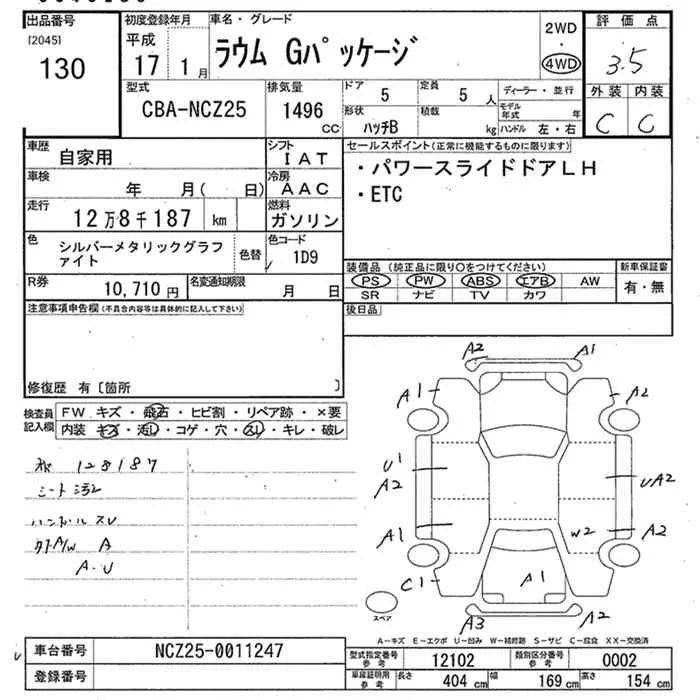 出品番号
[2045]
130
初度登録年月
平成
17 1月
車名・グレード
ラウム Gパッケージ
2WD
・
4WD
評価点
3.5
外装 内装
C C
型式
CBA-NCZ25
排気量
1496
CC
ドア 5
定員 5 人
形状
ハッチB
積載
kg
ディーラー・並行
モデル年式 年
ハンドル 左・右
車歴
自家用
シフト
IAT
車検
年 月( 日)
冷房
AAC
走行
12万8千187 km
燃料
ガソリン
色
シルバーメタリックグラファイト
色替
色コード
1D9
R券
10,710 円
名変通知期限
月 日
セールスポイント(正常に機能するものに限ります)
・パワースライドドアLH
・ETC
装備品 (純正品に限り○をつけてください)
PS PW ABS エアB AW
SR ナビ TV カワ
新車保証書
有・無
後日品
注意事項申告欄(不具合内容等は具体的に記入して下さい)
修復歴 有〔箇所 〕
検査員記入欄
FW キズ・飛石・ヒビ割・リペア跡・×要
内装 キズ・汚レ・コゲ・穴・スレ・キレ・破レ
128187
ハンドル スレ
A/W A
A・U
A2 A1
A1 A2
U1
A2
UA2
A1 W2 A2
C1 A1
A3 A2
スペア
A-キズ E-エクボ U-凹み W-補修跡 S-サビ C-腐食 XX-交換済
車台番号
NCZ25-0011247
登録番号
型式指定番号 参考
12102
類別区分番号 参考
0002
車庫証明用 参考
長さ 404 cm 幅 169 cm 高さ 154 cm